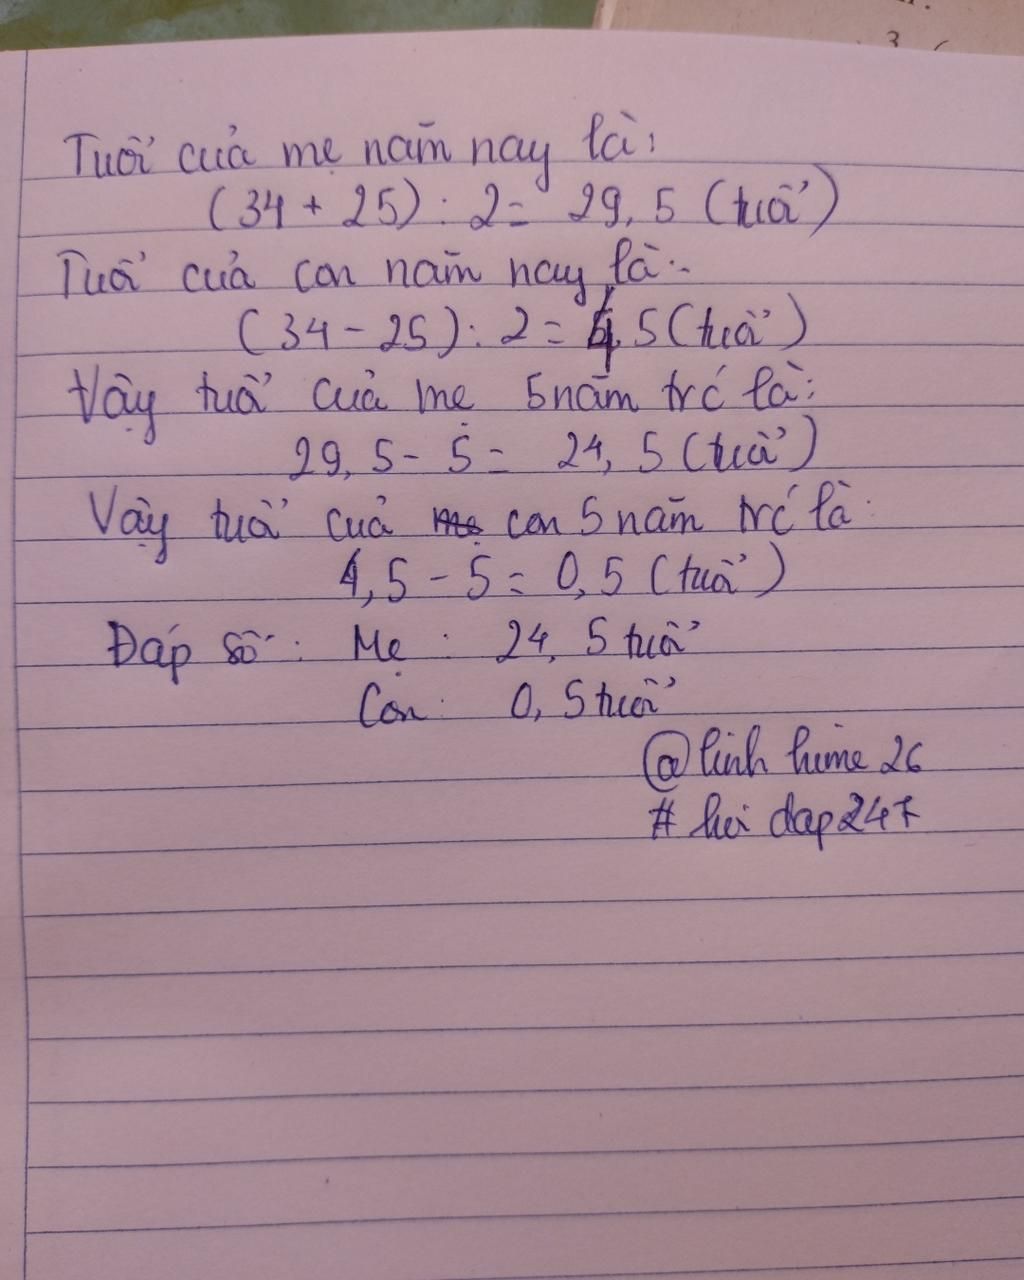 Tuổi của mẹ năm nay là:
(34 + 25) : 2 = 29,5 (tuổi)
Tuổi của con năm nay là:
(34 - 25) : 2 = 4,5 (tuổi)
Vậy tuổi của mẹ 5 năm trc là:
29,5 - 5 = 24,5 (tuổi)
Vậy tuổi của con 5 năm trc là:
4,5 - 5 = 0,5 (tuổi)
Đáp số: Mẹ : 24,5 tuổi
Con: 0,5 tuổi
@linh hime 26
# hoi dap247